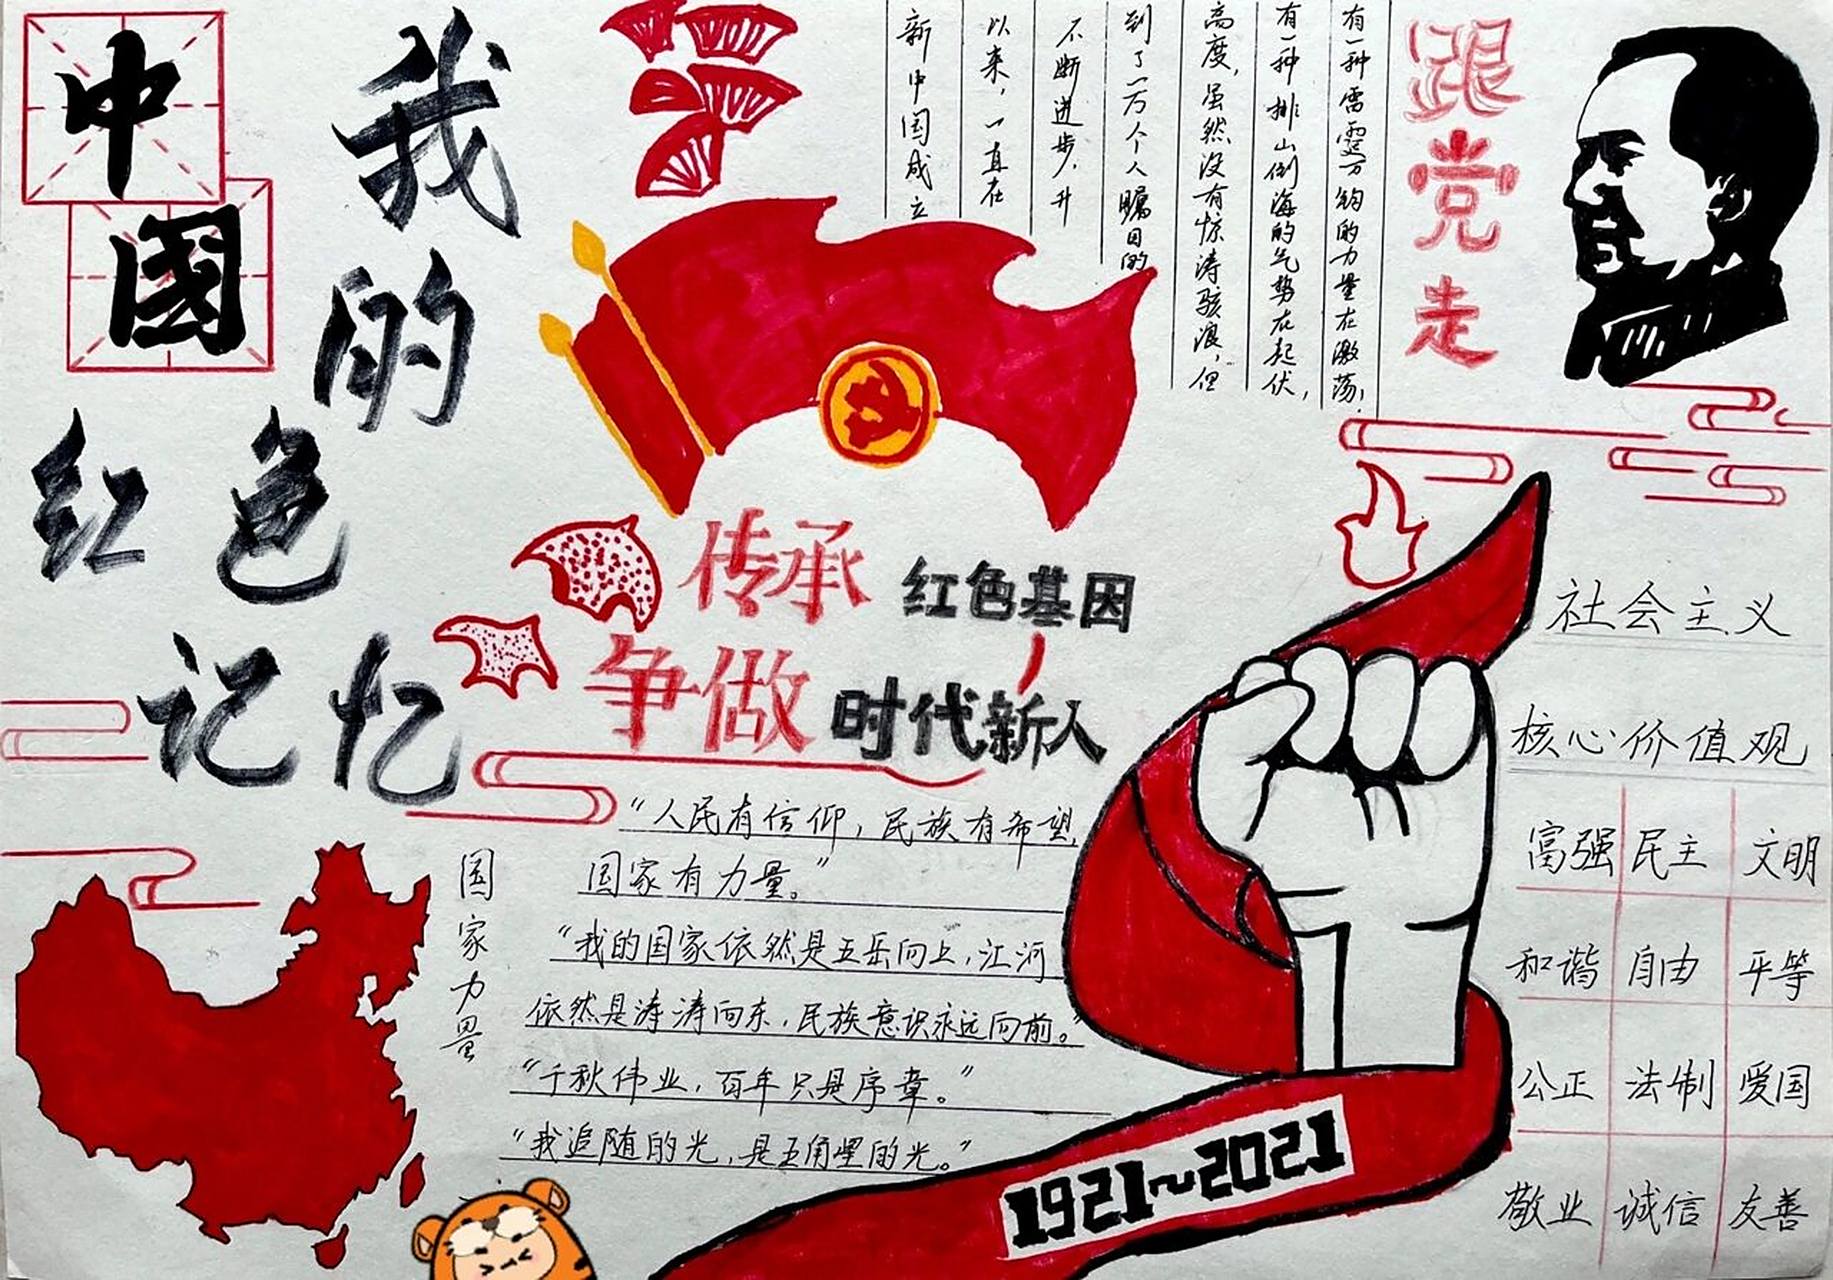 中国
我的
红色
记忆
有一种雷霆万钧的力量在激荡，
有一种排山倒海的气势在起伏，
高度，虽然没有惊涛骇浪，但
到了一万个人瞩目的
不断进步，升
以来，一直在
新中国成立
跟党走
传承 红色基因
争做 时代新人
社会主义
核心价值观
富强 民主 文明
和谐 自由 平等
公正 法制 爱国
敬业 诚信 友善
国家力量
“人民有信仰，民族有希望，
国家有力量。”
“我的国家依然是五岳向上，江河
依然是涛涛向东，民族意识永远向前。”
“千秋伟业，百年只是序章。”
“我追随的光，是五角星的光。”
1921~2021